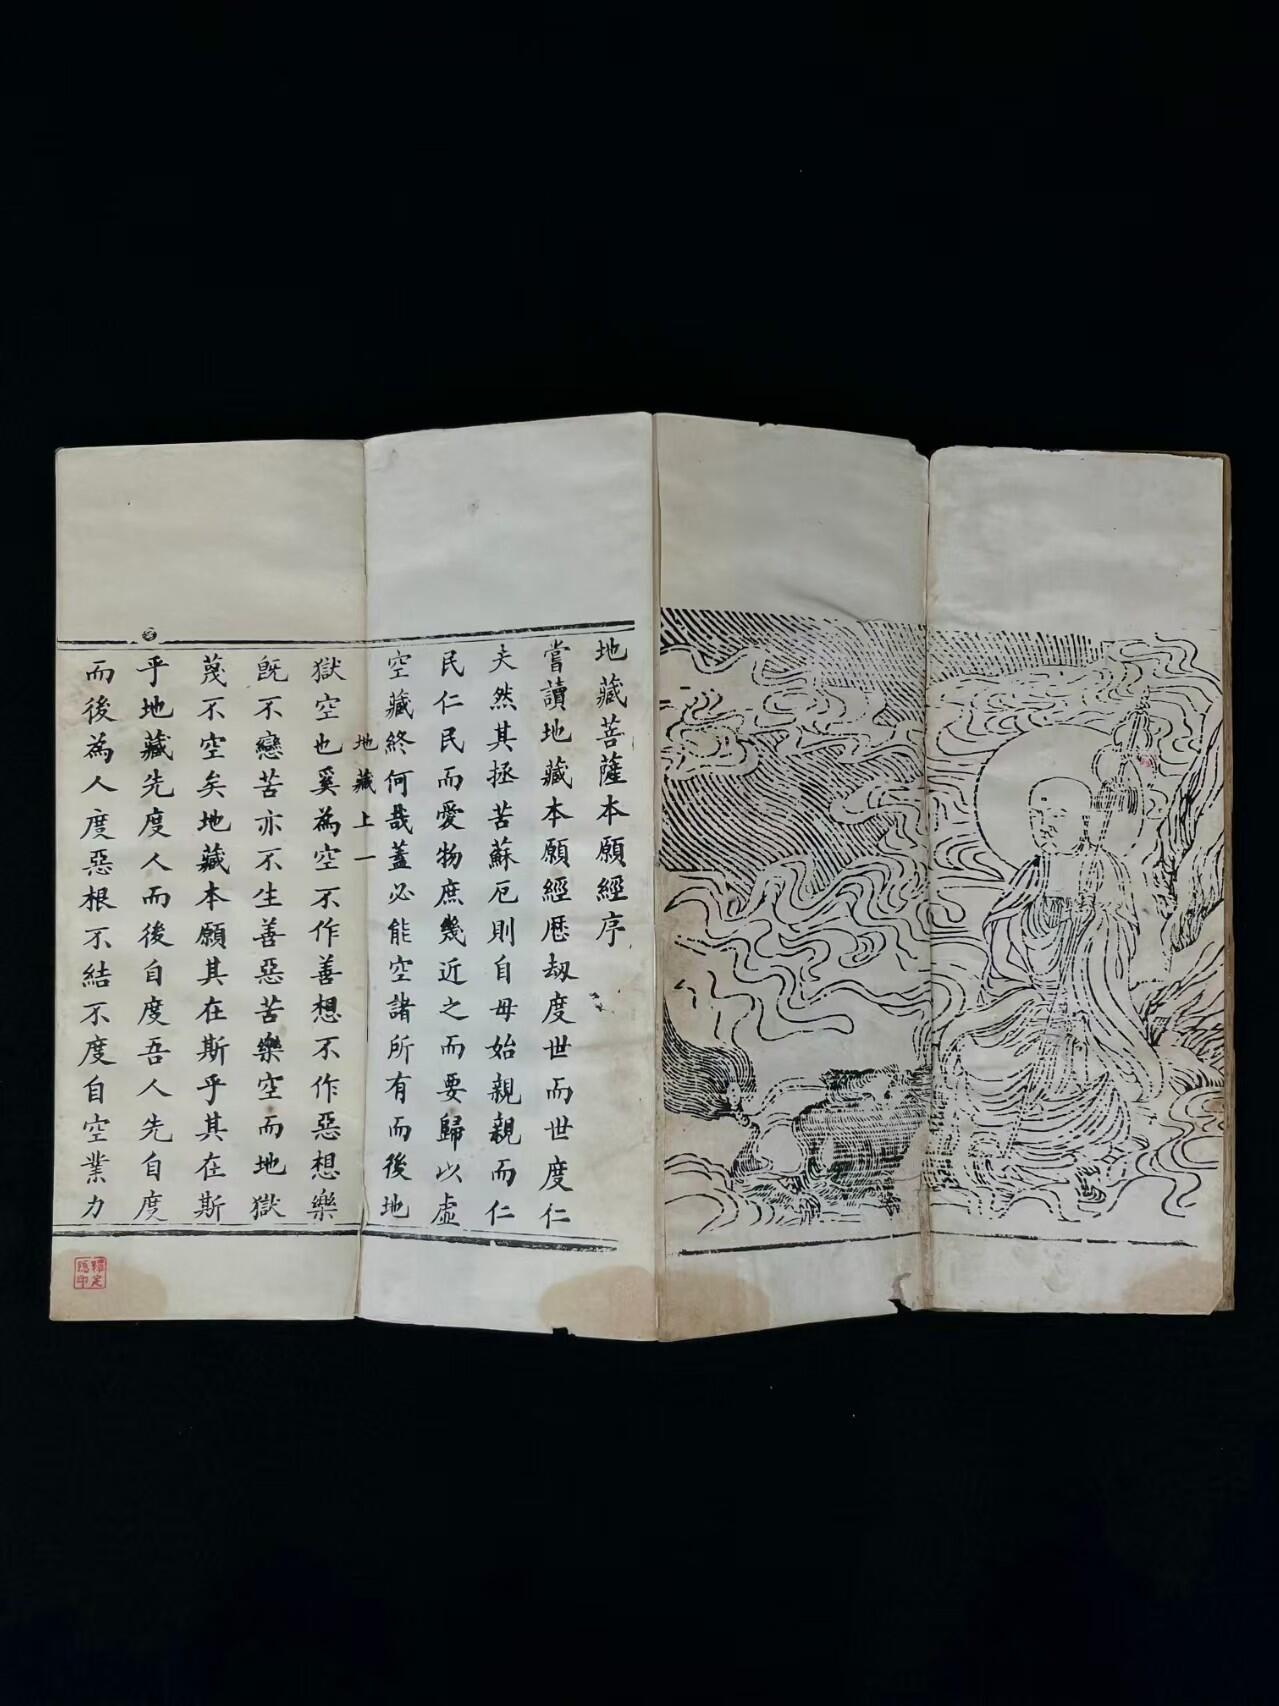 地藏菩薩本願經序
嘗讀地藏本願經歷劫度世而世度仁
夫然其拯苦蘇厄則自母始親親而仁
民仁民而愛物庶幾近之而要歸以虛
空藏終何哉蓋必能空諸所有而後地
地藏上一
獄空也奚為空不作善想不作惡想樂
既不戀苦亦不生善惡苦樂空而地獄
蔑不空矣地藏本願其在斯乎其在斯
乎地藏先度人而後自度吾人先自度
而後為人度惡根不結不度自空業力